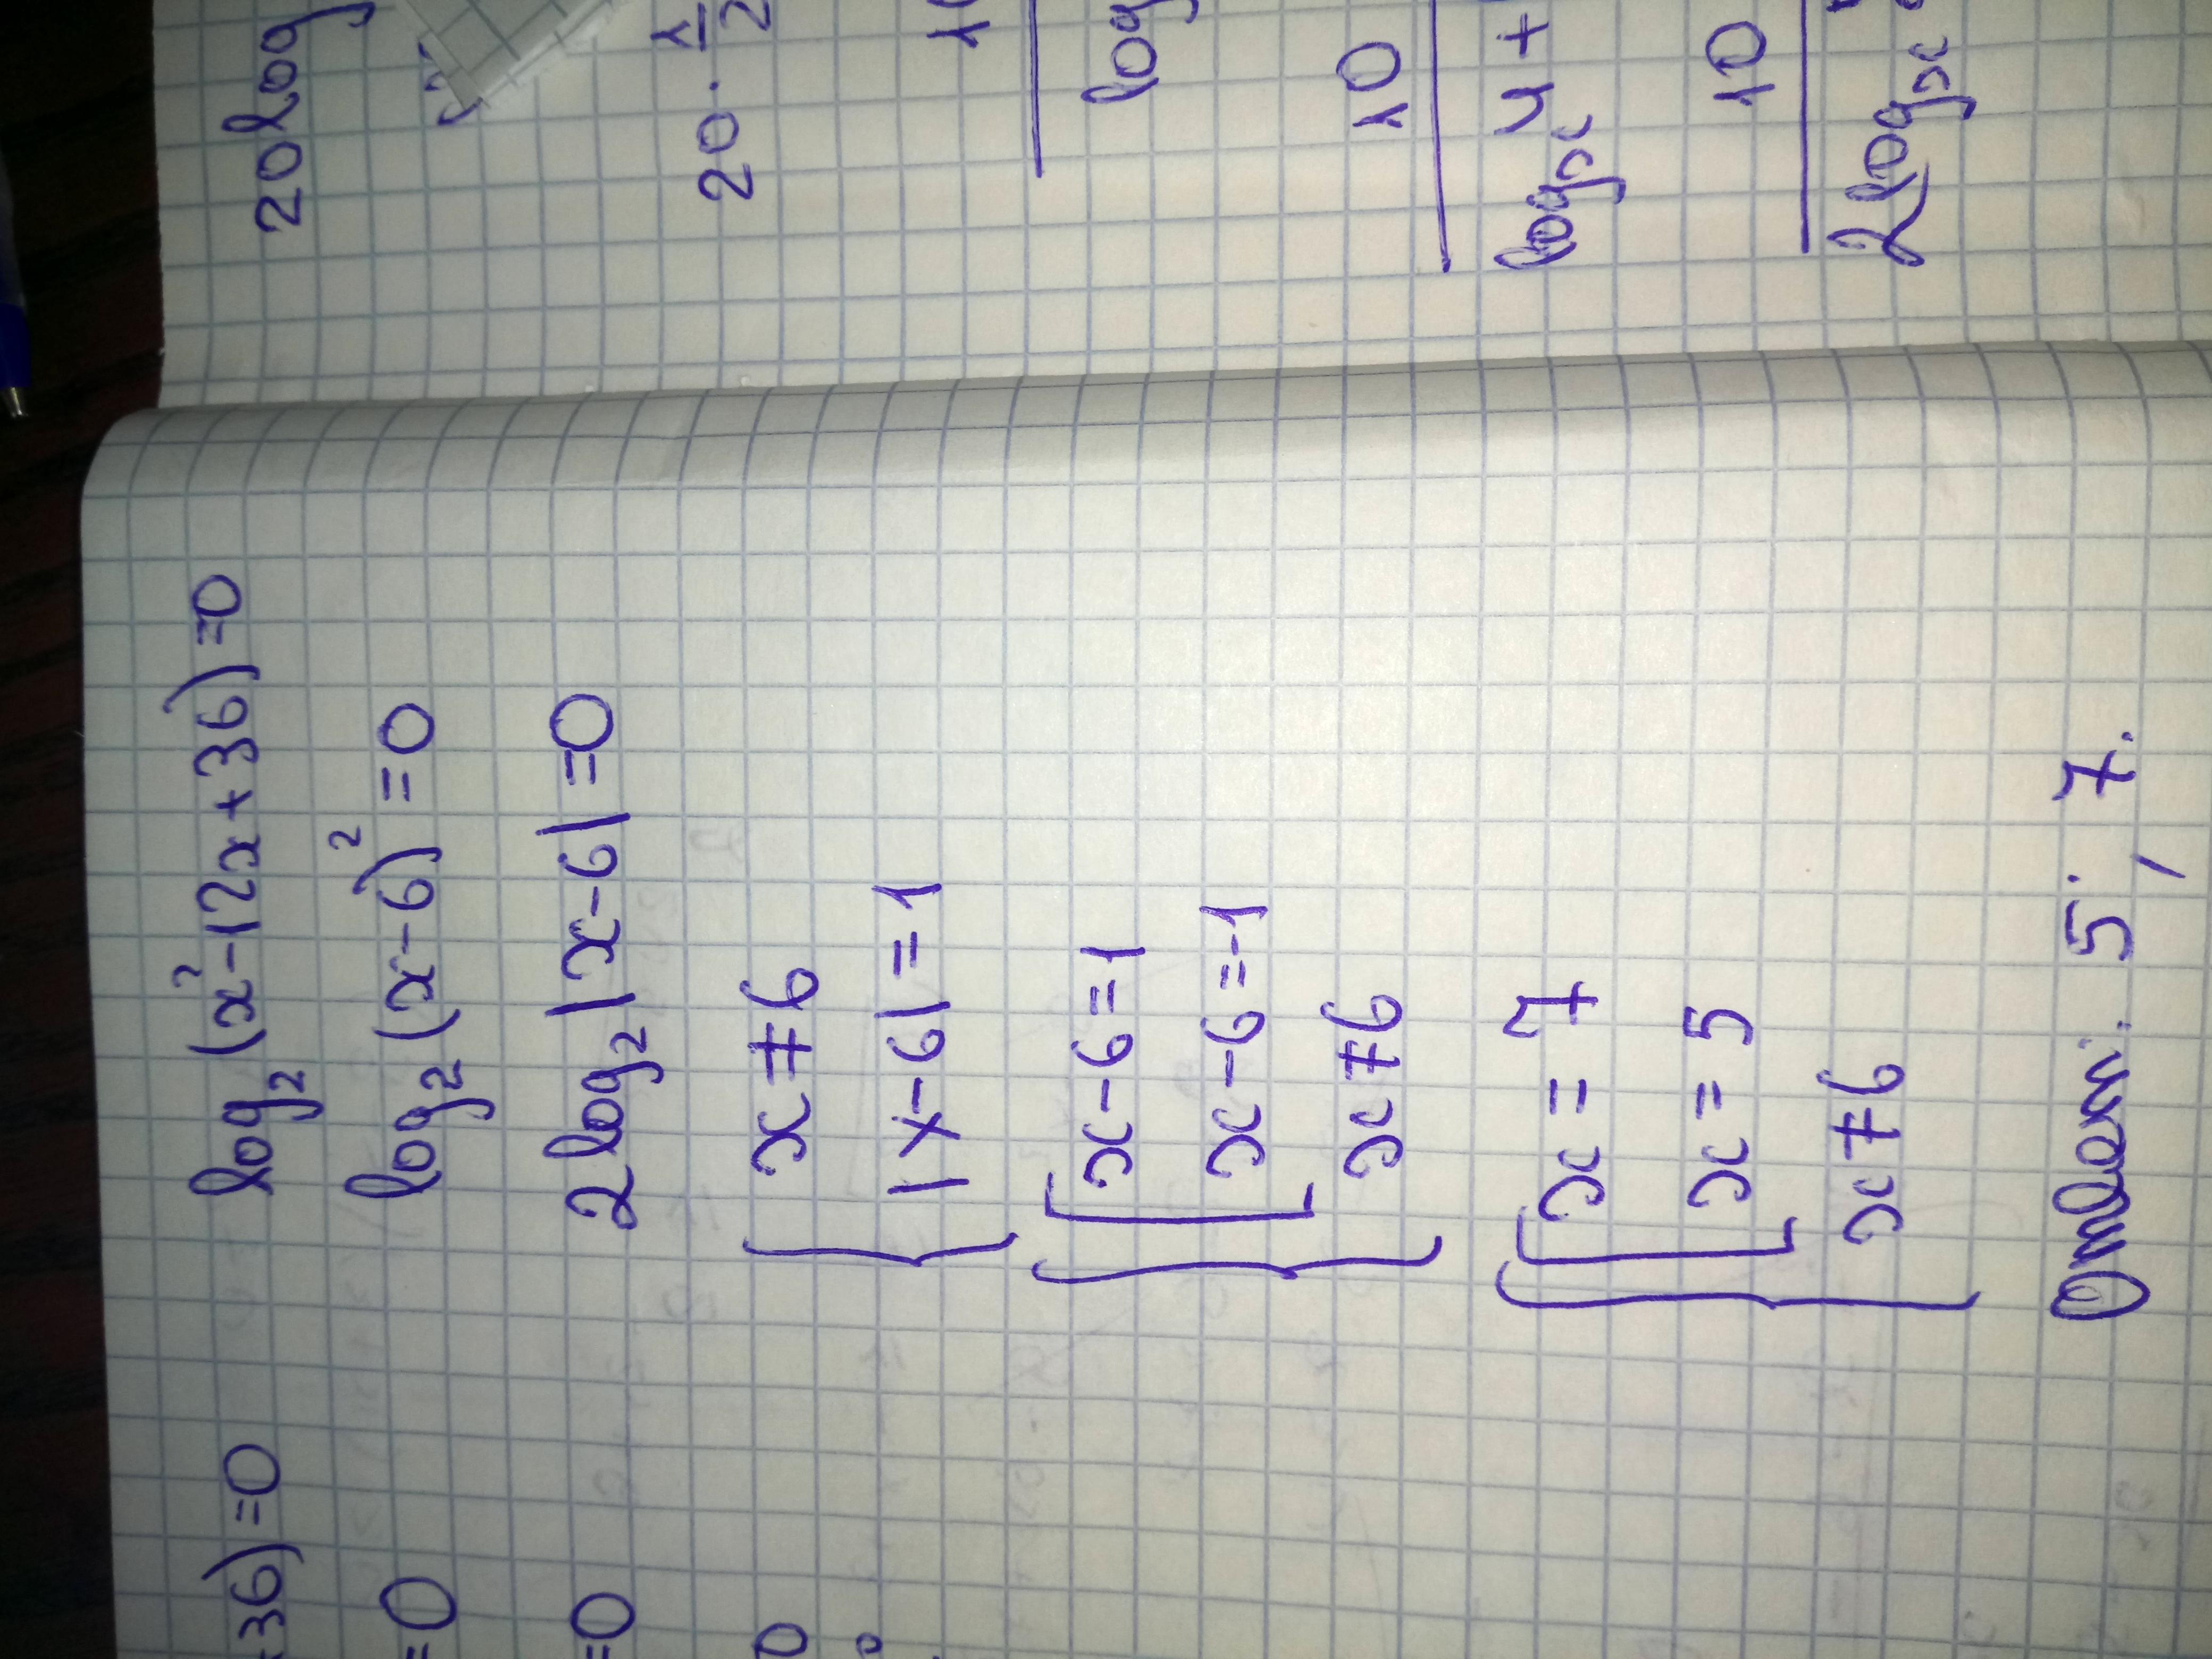 36) = 0
= 0
= 0
0
log₂(x² - 12x + 36) = 0
log₂(x - 6)² = 0
2log₂|x - 6| = 0
x ≠ 6
|x - 6| = 1
x - 6 = 1
x - 6 = -1
x ≠ 6
x = 7
x = 5
x ≠ 6
Ответ: 5; 7.
20log
20 · 1/2
log
10
logₓ4 +
10
2logₓ